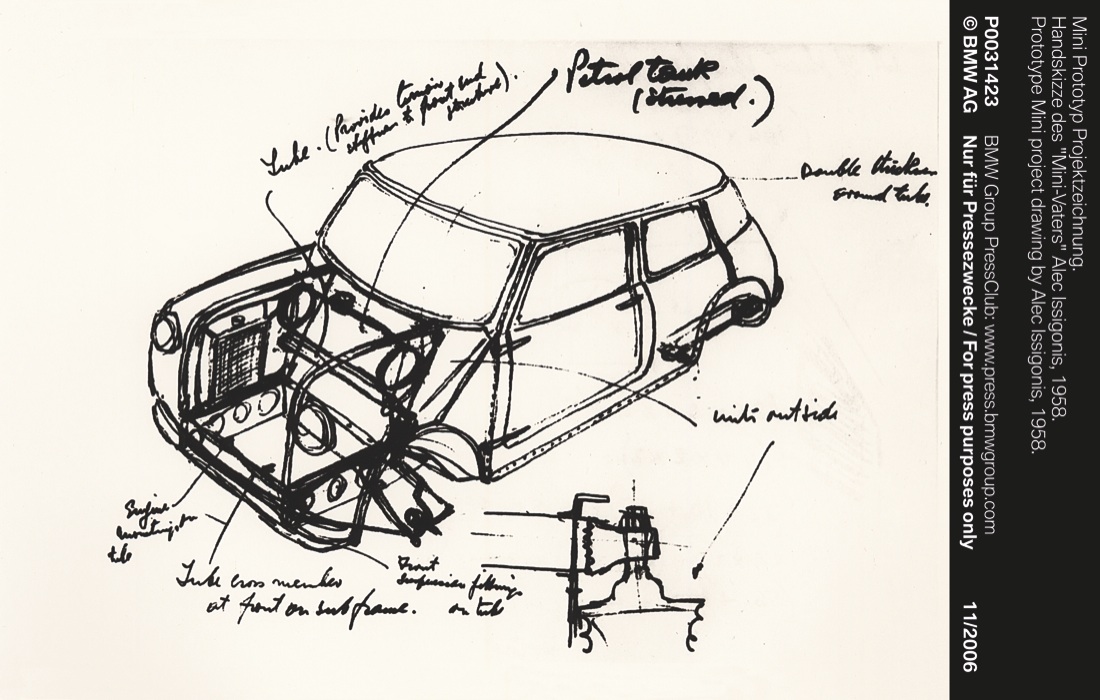 Petrol tank
(stressed.)
Tube. (Provides torsion and
stiffness to front end
structure).
Double thickness
around tube.
units outside
Engine
mountings on
tube
Tube cross member
at front on subframe.
Front
Suspension fittings
on tube
Mini Prototyp Projektzeichnung.
Handskizze des "Mini-Vaters" Alec Issigonis, 1958.
Prototype Mini project drawing by Alec Issigonis, 1958.
P0031423 BMW Group PressClub: www.press.bmwgroup.com
© BMW AG Nur für Pressezwecke / For press purposes only 11/2006